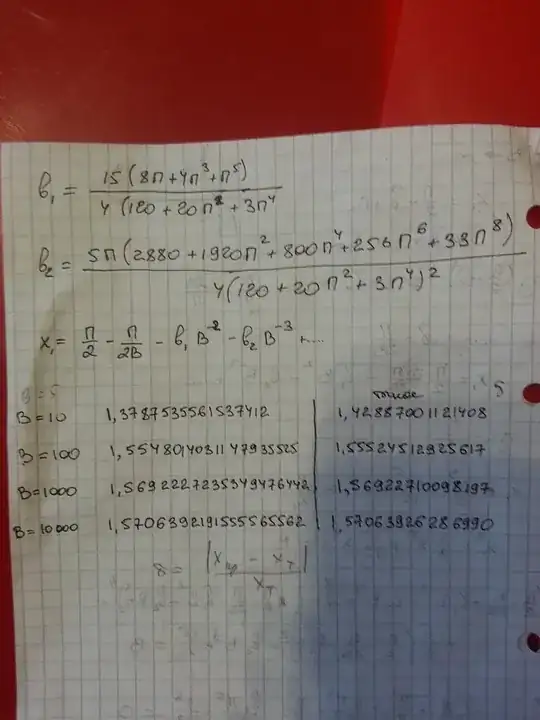 в₁ = 15(8п+4п³+п⁵) / 4(120+20п²+3п⁴
в₂ = 5п(2880+1920п²+800п⁴+256п⁶+33п⁸) / 4(120+20п²+3п⁴)²
x₁ = п/2 - п/2B - в₁B⁻² - в₂B⁻³ + ....
B=10 1,3787535561537412 1,42887001121408
B=100 1,5548014031147935525 1,55524512925617
B=1000 1,5692227235349476442 1,56922710098197
B=10000 1,5706392191555565562 1,57063926286990